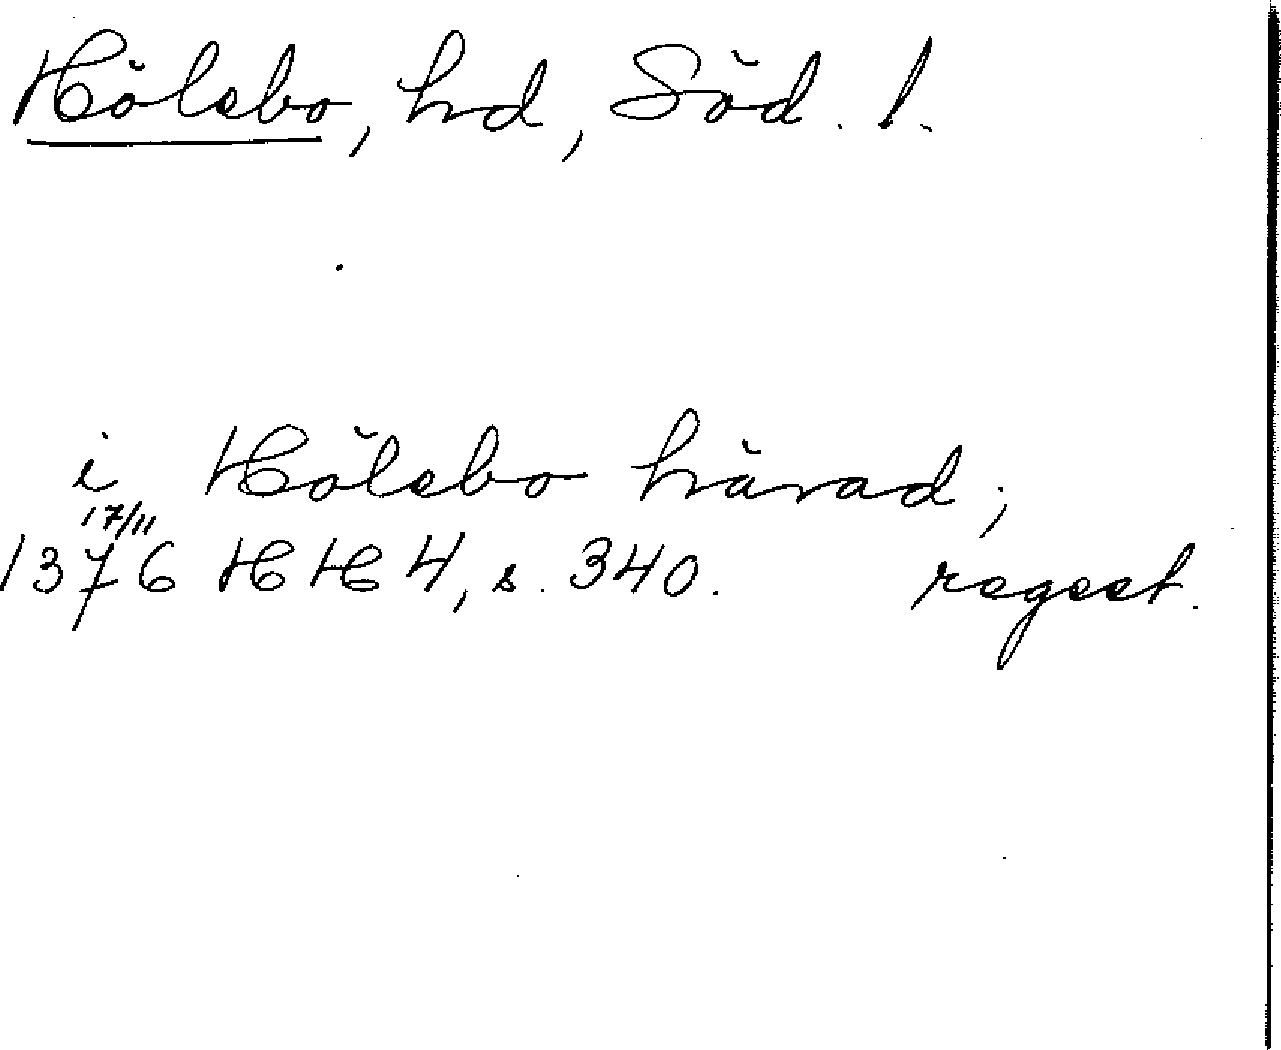 Hölebo, hd, Söd. l.
i Hölebo härad;
17/11
1376 HH 4, s. 340. regest.